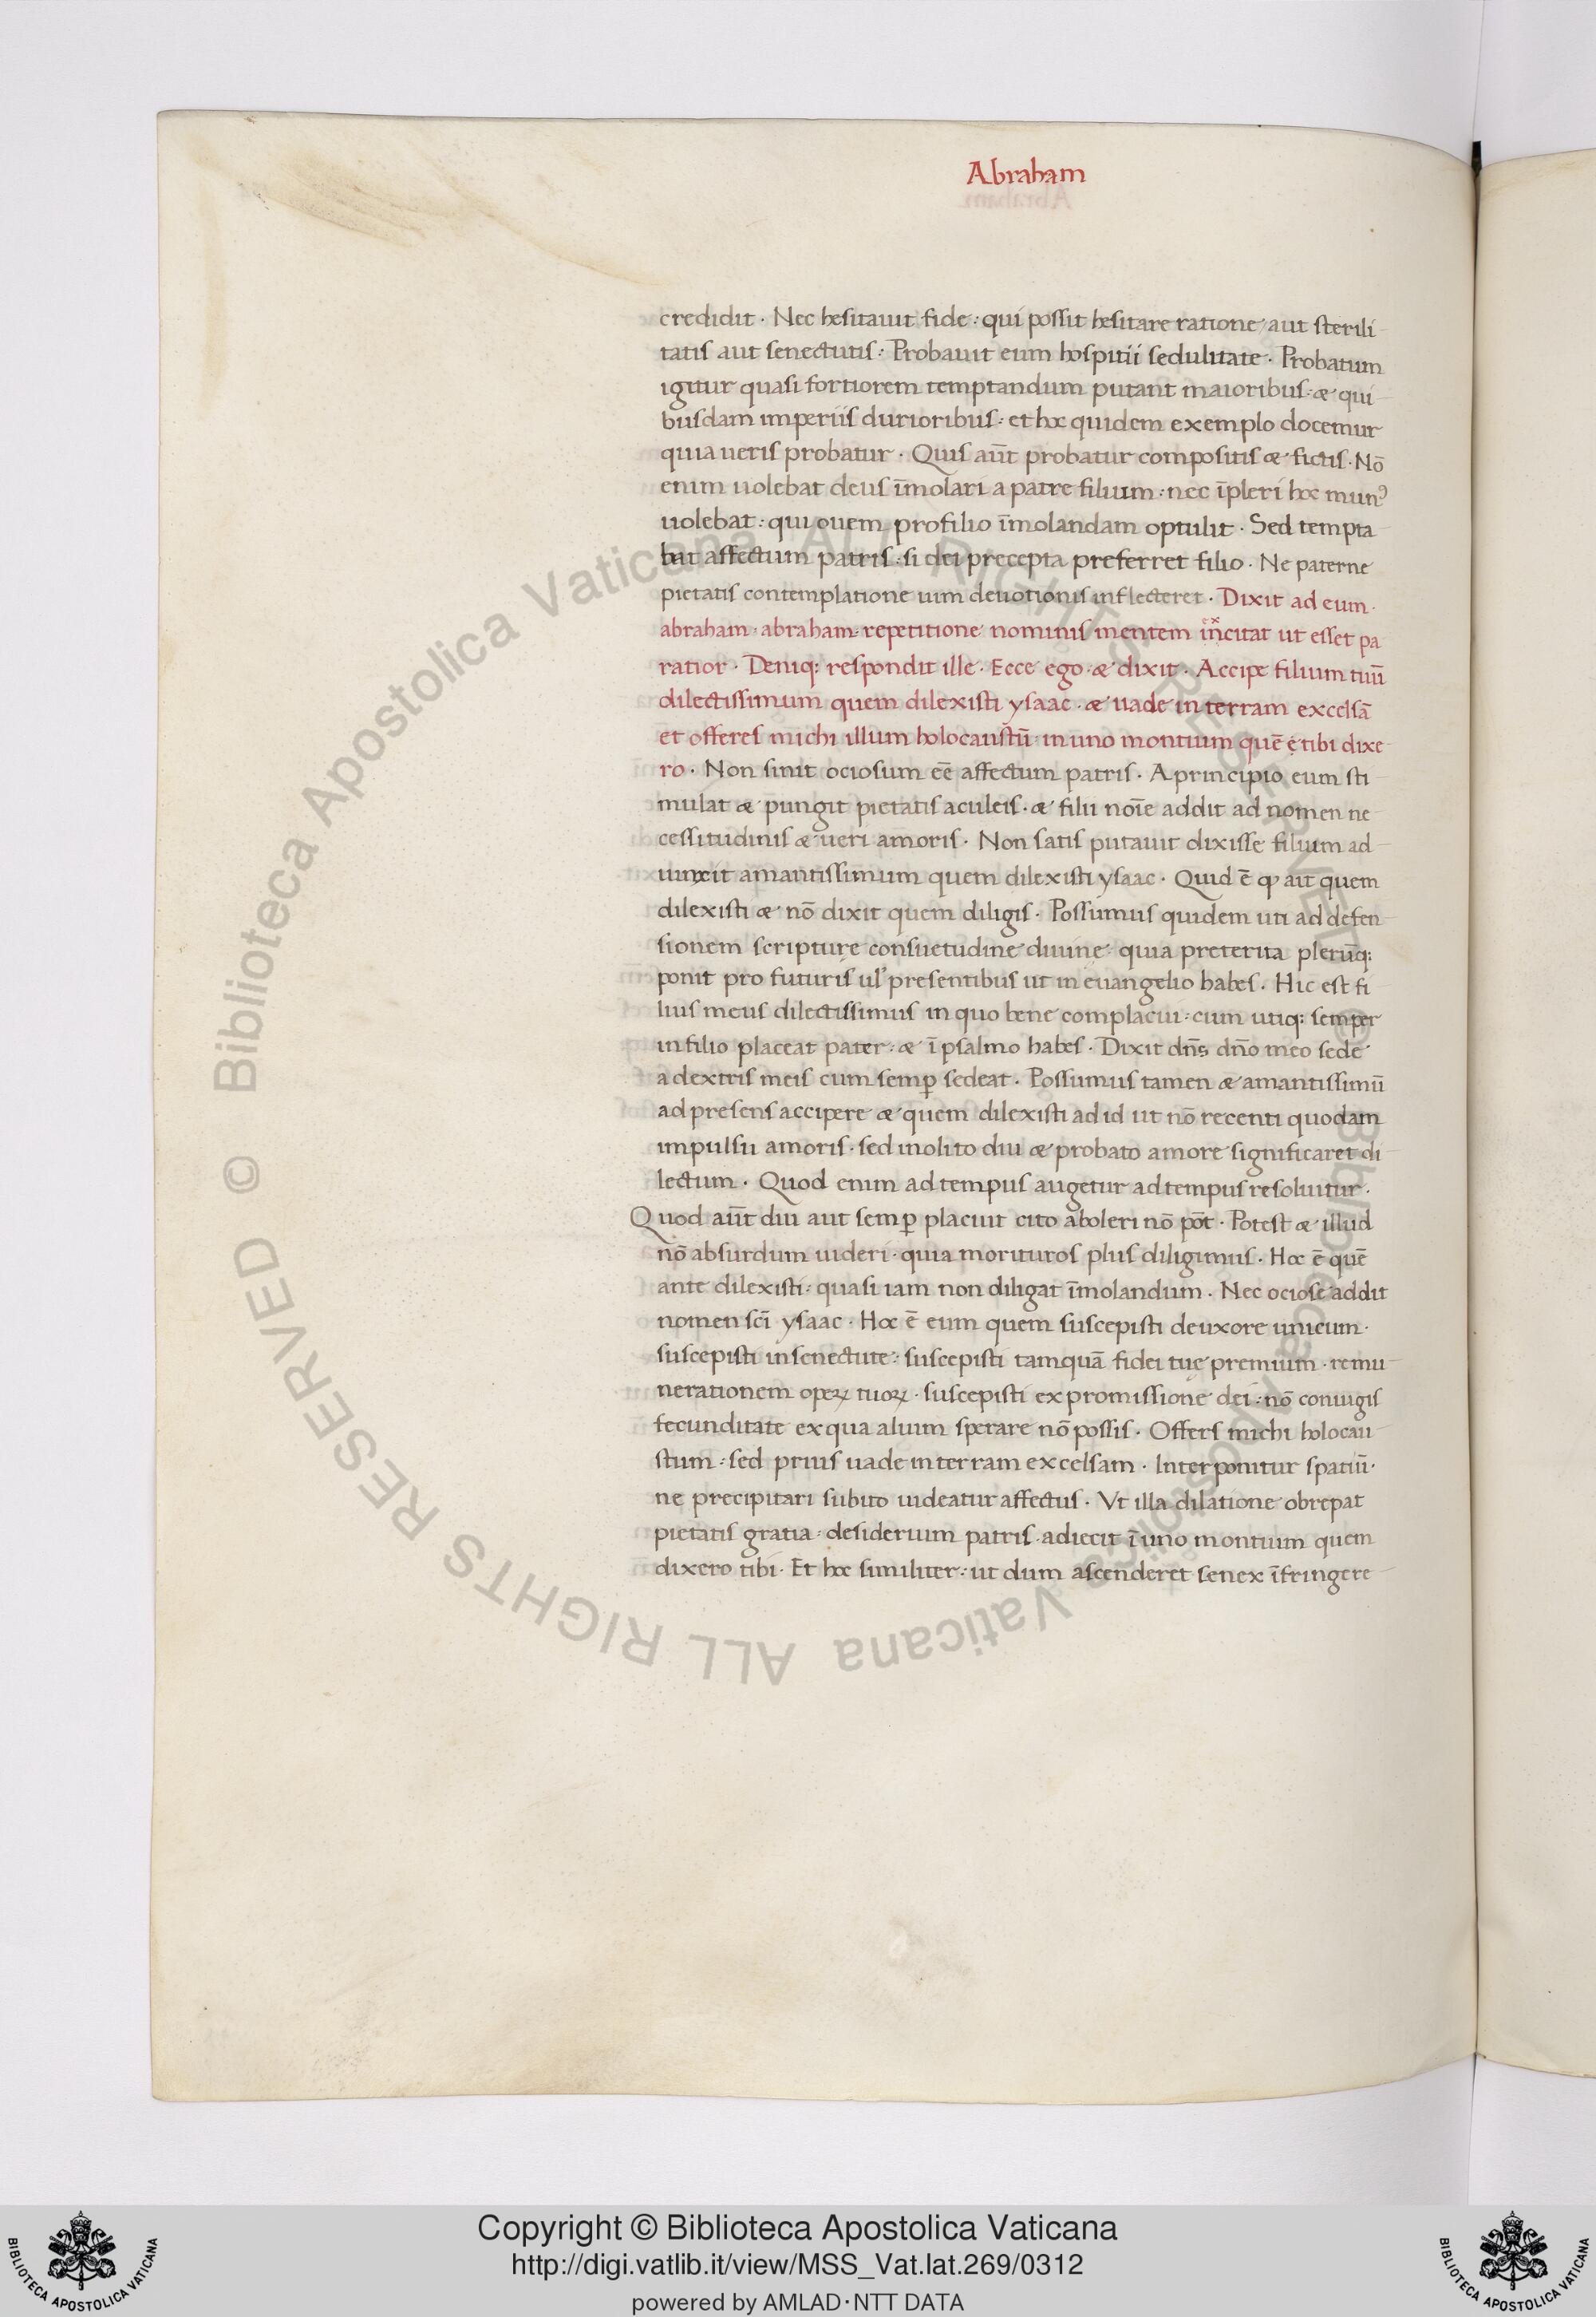 Abraham
credidit · Nec hesitauit fide : qui possit hesitare ratione aut sterili
tatis aut senectutis : Probauit eum hospitii sedulitate · Probatum
igitur quasi fortiorem temptandum putant maioribus : æ qui
busdam imperiis durioribus : et hoc quidem exemplo docemur
quia ueris probatur · Quis aūt probatur compositis æ fictis · Nō
enim uolebat deus īmolari a patre filium : nec īpleri hoc munꝰ
uolebat : qui ouem pro filio īmolandam optulit · Sed tempta
bat affectum patris : si dei precepta preferret filio · Ne paterne
pietatis contemplatione uim deuotionis inflecteret · Dixit ad eum ·
abraham · abraham · repetitione nominis mentem īncitat ut esset pa
ratior · Deniq; respondit ille · Ecce ego · æ dixit · Accipe filium tuū
dilectissimum quem dilexisti ysaac · æ uade in terram excelsā
et offeres michi illum holocaustū · in uno montium quē ę tibi dixe
ro · Non sinit ociosum eē affectum patris · A principio eum sti
mulat æ pungit pietatis aculeis · æ filii noīe addit ad nomen ne
cessitudinis æ ueri amoris · Non satis putauit dixisse filium ad
iunxit amantissimum quem dilexisti ysaac · Quid ē ꝙ ait quem
dilexisti æ nō dixit quem diligis · Possumus quidem uti ad defen
sionem scripture consuetudine diuine · quia preterita plerūq;
ponit pro futuris ul' presentibus ut in euangelio habes · Hic est fi
lius meus dilectissimus in quo bene complacui · cum utiq; semper
in filio placeat pater : æ ī psalmo habes · Dixit dn̄s dn̄o meo sede
a dextris meis cum semp̄ sedeat · Possumus tamen æ amantissimū
ad presens accipere æ quem dilexisti ad id ut nō recenti quodam
impulsu amoris · sed inolito diu æ probato amore significaret di
lectum · Quod enim ad tempus augetur ad tempus resoluitur ·
Quod aūt diu aut semp̄ placuit cito aboleri nō pōt · Potest æ illud
nō absurdum uideri · quia morituros plus diligimus · Hoc ē quē
ante dilexisti : quasi iam non diligat īmolandum · Nec ociose addit
nomen sc̄i ysaac · Hoc ē eum quem suscepisti de uxore unicum ·
suscepisti in senectute : suscepisti tamquā fidei tuę premium · remu
nerationem operꝝ tuorꝝ · suscepisti ex promissione dei : nō coniugis
fecunditate ex qua aluim sperare nō possis · Offers michi holocau
stum : sed prius uade in terram excelsam · Interponitur spatiū ·
ne precipitari subito uideatur affectus · Vt illa dilatione obrepat
pietatis gratia : desiderium patris · adiecit ī uno montium quem
dixero tibi · Et hoc similiter : ut dum ascenderet senex īfringere
© Biblioteca Apostolica Vaticana ALL RIGHTS RESERVED
© Biblioteca Apostolica Vaticana ALL RIGHTS RESERVED
Copyright © Biblioteca Apostolica Vaticana
http://digi.vatlib.it/view/MSS_Vat.lat.269/0312
powered by AMLAD·NTT DATA
BIBLIOTECA APOSTOLICA VATICANA
BIBLIOTECA APOSTOLICA VATICANA